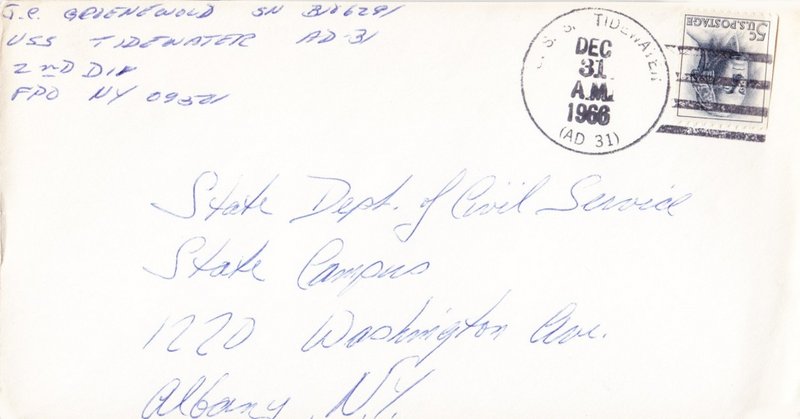 J.C. GROENEWOLD SN
USS TIDEWATER AD-31
2ND DIV
FPO NY 09501
U.S.S. TIDEWATER
DEC
31
A.M.
1966
(AD 31)
5c U.S. POSTAGE
State Dept. of Civil Service
State Campus
1220 Washington Ave.
Albany, N.Y.